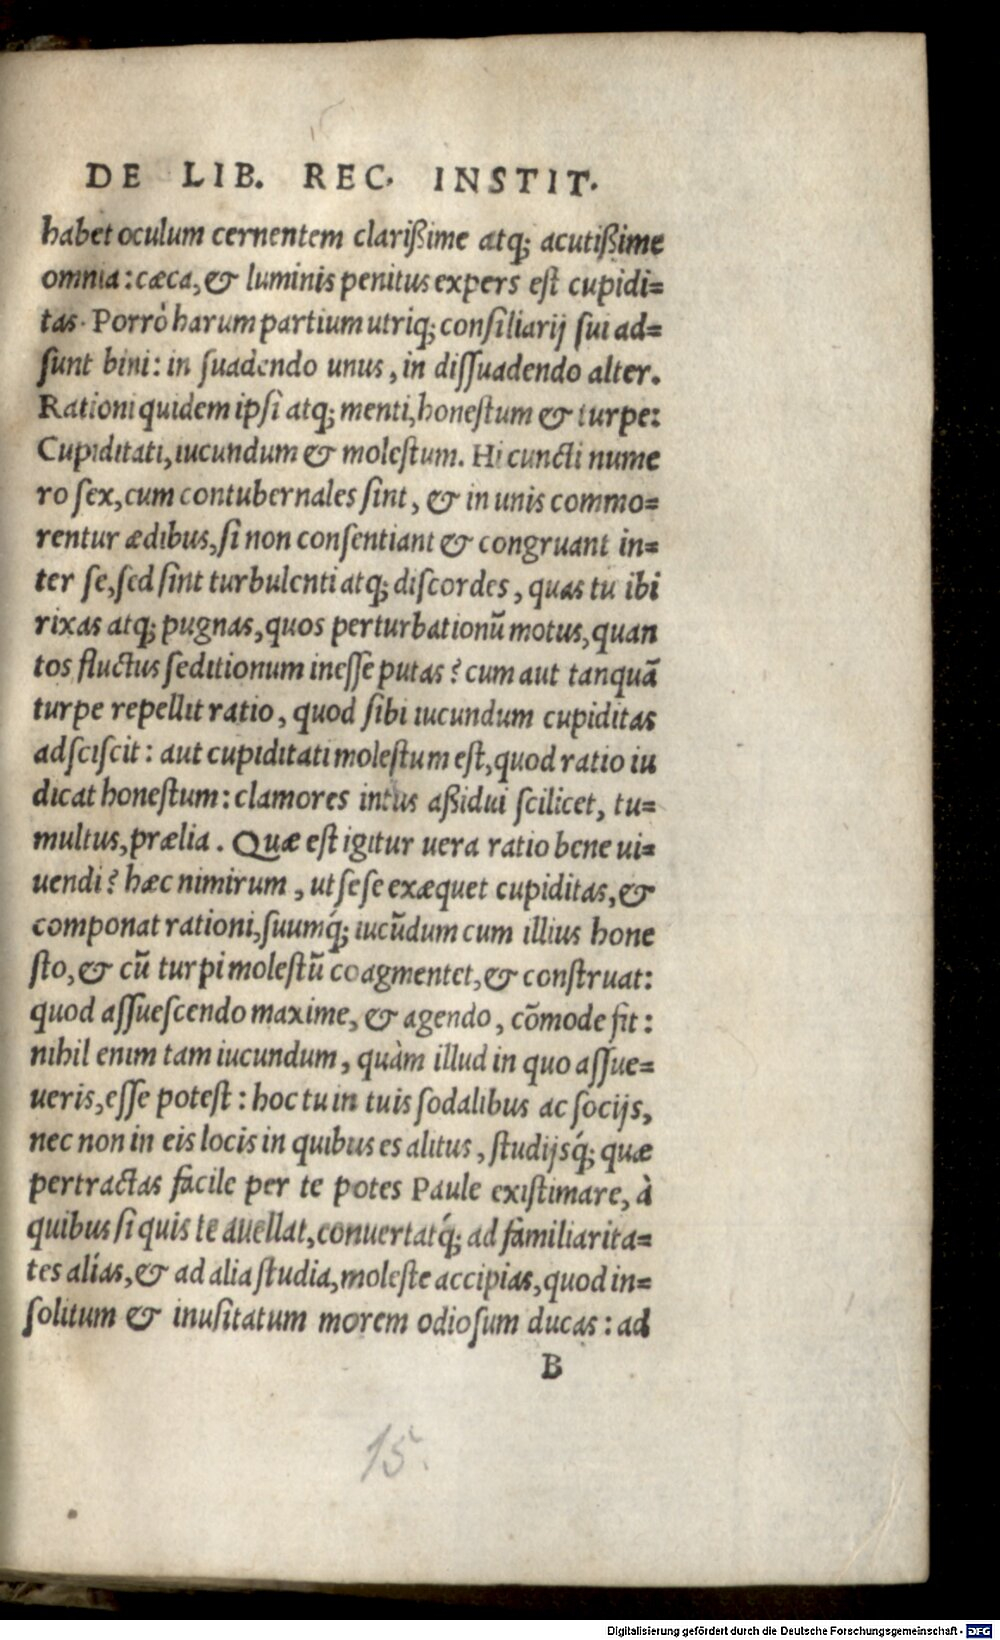 DE LIB. REC. INSTIT.
habet oculum cernentem clarißime atq; acutißime
omnia: cæca, & luminis penitus expers est cupidi=
tas. Porrò harum partium utriq; consiliarij sui ad=
sunt bini: in suadendo unus, in dissuadendo alter.
Rationi quidem ipsi atq; menti, honestum & turpe:
Cupiditati, iucundum & molestum. Hi cuncti nume
ro sex, cum contubernales sint, & in unis commo=
rentur ædibus, si non consentiant & congruant in=
ter se, sed sint turbulenti atq; discordes, quas tu ibi
rixas atq; pugnas, quos perturbationũ motus, quan
tos fluctus seditionum inesse putas? cum aut tanquã
turpe repellit ratio, quod sibi iucundum cupiditas
adsciscit: aut cupiditati molestum est, quod ratio iu
dicat honestum: clamores intus aßidui scilicet, tu=
multus, prælia. Quæ est igitur uera ratio bene ui=
uendi? hæc nimirum, ut sese exæquet cupiditas, &
componat rationi, suumq́; iucũdum cum illius hone
sto, & cũ turpi molestũ coagmentet, & construat:
quod assuescendo maxime, & agendo, cõmode fit:
nihil enim tam iucundum, quàm illud in quo assue=
ueris, esse potest: hoc tu in tuis sodalibus ac socijs,
nec non in eis locis in quibus es alitus, studijsq́; quæ
pertractas facile per te potes Paule existimare, à
quibus si quis te auellat, conuertatq́; ad familiarita=
tes alias, & ad alia studia, moleste accipias, quod in=
solitum & inusitatum morem odiosum ducas: ad
B
15.
Digitalisierung gefördert durch die Deutsche Forschungsgemeinschaft - DFG